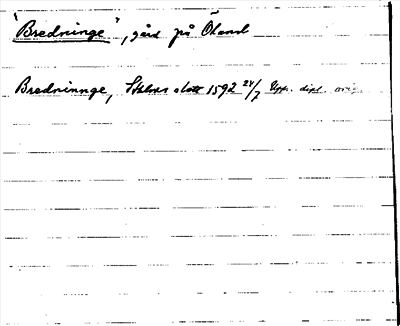 "Bredninge", gård på Öland
Bredninnge, Sthlms slott 1592 24/7 Upps. dipl. orig.